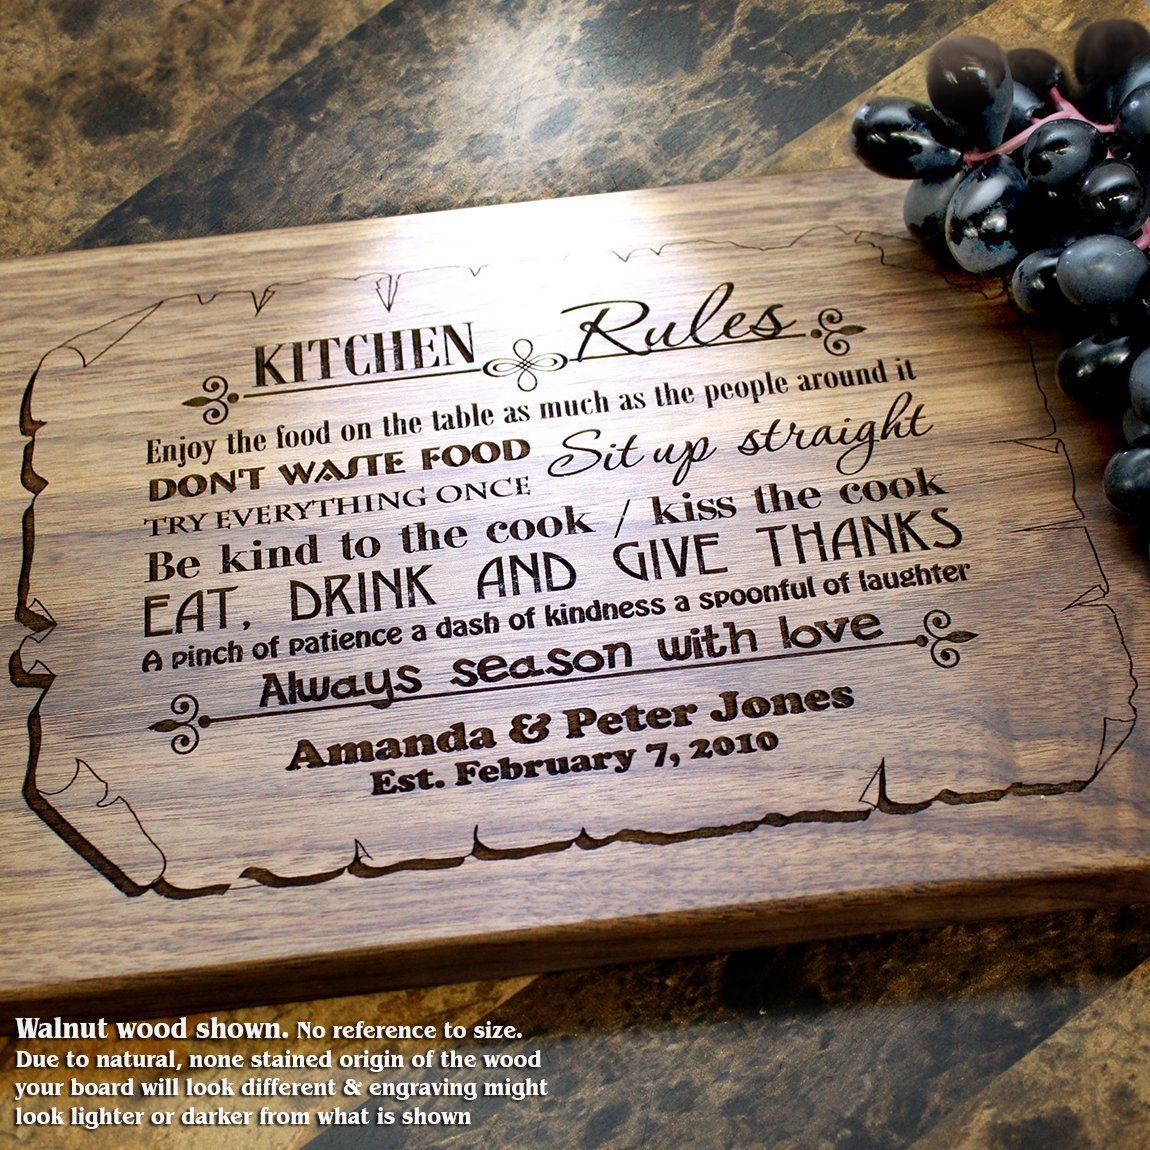 KITCHEN Rules
Enjoy the food on the table as much as the people around it
DON'T WASTE FOOD Sit up straight
TRY EVERYTHING ONCE
Be kind to the cook / kiss the cook
EAT, DRINK AND GIVE THANKS
A pinch of patience a dash of kindness a spoonful of laughter
Always season with love
Amanda & Peter Jones
Est. February 7, 2010
Walnut wood shown. No reference to size.
Due to natural, none stained origin of the wood
your board will look different & engraving might
look lighter or darker from what is shown